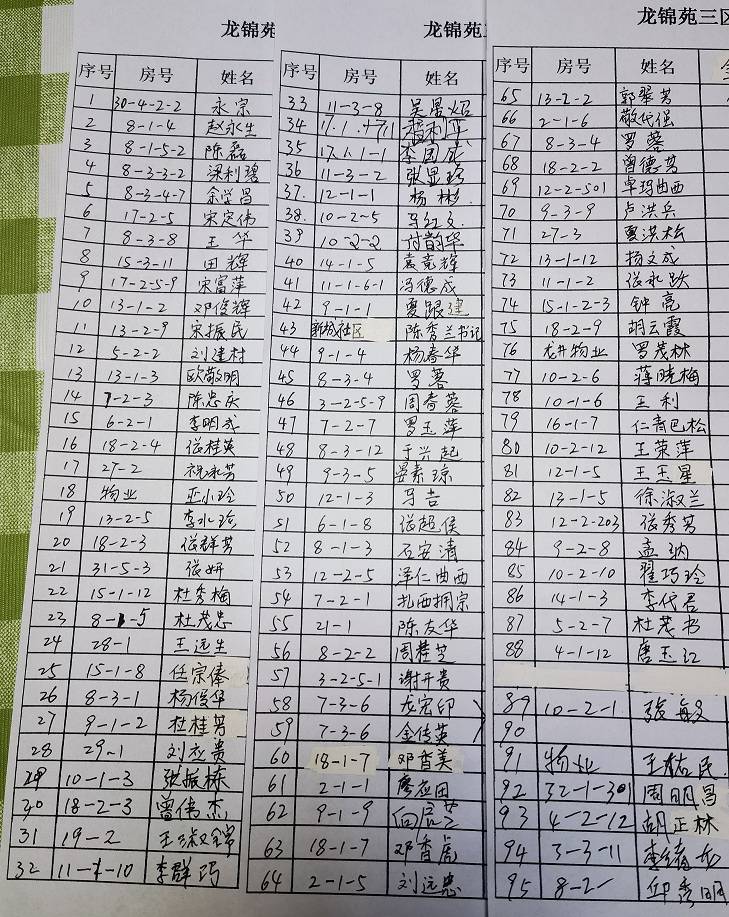 龙锦苑
序号 房号 姓名
1 30-4-2-2 永宗
2 8-1-4 赵永生
3 8-1-5-2 陈磊
4 8-3-3-2 梁利碧
5 8-3-4-7 余学昌
6 17-2-5 宋定伟
7 8-3-8 王华
8 15-3-11 田辉
9 17-2-5-9 宋富萍
10 13-1-2 邓俊辉
11 13-2-9 宋振民
12 5-2-2 刘建村
13 13-1-3 欧敬明
14 7-2-3 陈忠庆
15 6-2-1 李明成
16 18-2-4 张桂英
17 27-2 祝永芳
18 物业 巫小玲
19 13-2-5 李水珍
20 18-2-3 张群芳
21 31-5-3 张妍
22 15-1-12 杜秀梅
23 8-1-5 杜茂忠
24 28-1 王远生
25 15-1-8 任宗俸
26 8-3-1 杨俊华
27 9-1-2 杜桂芳
28 29-1 刘应贵
29 10-1-3 张振栋
30 18-2-3 曾伟杰
31 19-2 王淑锦
32 11-1-10 李群巧
龙锦苑
序号 房号 姓名
33 11-3-8 吴昱炤
34 香利平
35 17-1-1-1 李国成
36 11-3-2 张显珍
37 12-1-1 杨彬
38 10-2-5 马红文
39 10-2-2 付韵华
40 14-1-5 袁竞辉
41 11-1-6-1 冯德成
42 9-1-1 夏跟建
43 社区 陈秀兰书记
44 9-1-4 杨春华
45 8-3-4 罗蓉
46 3-2-5-9 周春蓉
47 7-2-7 罗玉萍
48 8-3-12 于兴起
49 9-3-5 晏素琼
50 12-1-3 马吉
51 6-1-8 张起侯
52 8-1-3 石安清
53 12-2-5 泽仁曲西
54 7-2-1 扎西拥宗
55 21-1 陈友华
56 8-2-2 周桂芝
57 3-2-5-1 谢开贵
58 7-3-6 龙宏印
59 7-3-6 金传英
60 18-1-7 邓香美
61 2-1-1 廖应田
62 9-1-9 向居芝
63 18-1-7 邓香虎
64 2-1-5 刘远忠
龙锦苑三区
序号 房号 姓名
65 13-2-2 郭翠芳
66 2-1-6 敬代强
67 8-3-4 罗蓉
68 18-2-2 曾德芳
69 12-2-501 卓玛曲西
70 9-3-9 卢洪兵
71 27-3 夏洪松
72 13-1-12 杨文成
73 11-1-2 张永跃
74 15-1-2-3 钟亮
75 18-2-9 胡云霞
76 龙井物业 罗茂林
77 10-2-6 蒋晓梅
78 10-1-6 王利
79 16-1-7 仁青巴松
80 10-2-12 王荣萍
81 12-1-5 王玉星
82 13-1-5 徐淑兰
83 12-2-203 张秀芳
84 9-2-8 孟纳
85 10-2-10 翟巧玲
86 14-1-3 李代君
87 5-2-7 杜茂书
88 4-1-12 唐玉江
89 10-2-1 张毅
90
91 物业 王祜民
92 32-1-301 周明昌
93 4-2-12 胡正林
94 3-3-11
95 8-2- 邱秀明